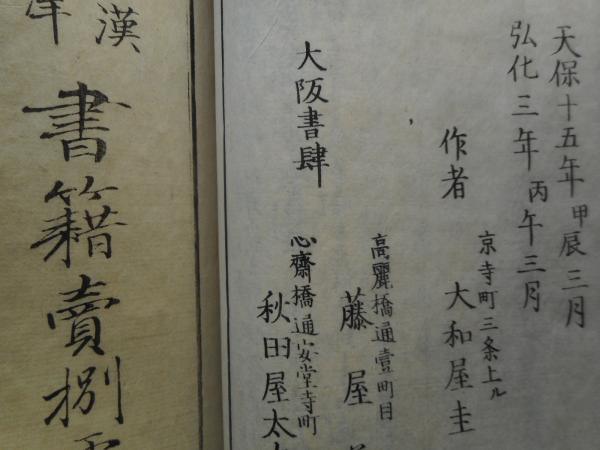 天保十五年甲辰三月
弘化三年丙午三月
京寺町三条上ル
作者
大和屋圭
高麗橋通壹町目
藤屋
大阪書肆
心齋橋通安堂寺町
秋田屋太
漢
書籍賣捌